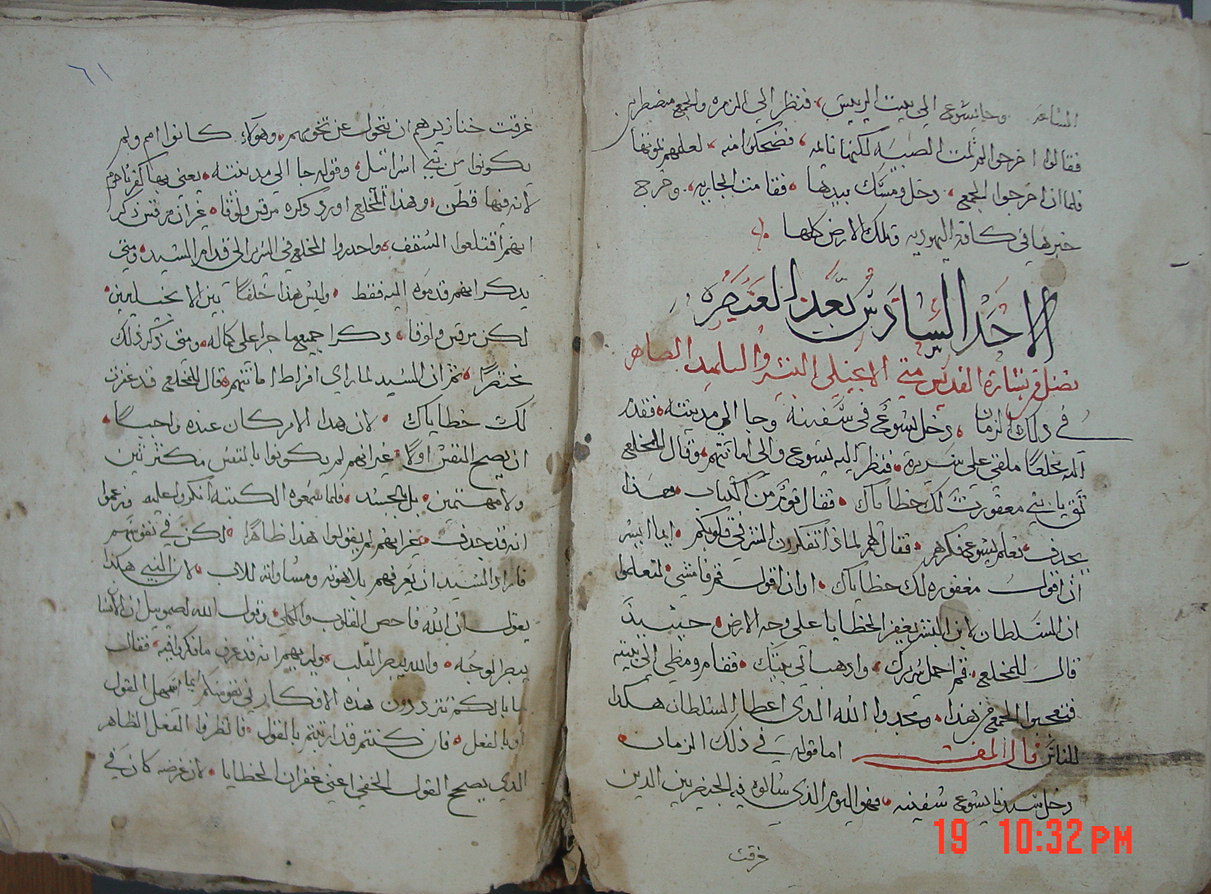 وجا يسوع الى بيت الرييس، فنظر الى الزمره والجمع مضطربين
فقال اخرجوا لم تمت الصبيه لكنها نايمه، فضحكوا منه، لعلمهم بموتها
فلما ان اخرجوا الجمع، دخل ومسك بيدها، فقامت الجاريه، وخرج
خبرها في كافة اليهوديه وتلك الارض كلها
الاحد السادس بعد العنصره
فصل من بشارة القديس متى الانجيلي البشير والتلميد الطاهر
في دلك الزمان، دخل يسوع في سفينة وجا الى مدينته، فقدم
اليه مخلعًا ملقى على سريره، فنظر اليه يسوع والى امانتهم، وقال للمخلع
ثق يا بني مغفورة لك خطاياك، فقال قوم من الكتاب، هدا
يجدف، فعلم يسوع فكرهم، فقال لهم لمادا تفكرون الشر في قلوبكم، ايما ايسر
ان اقول مغفوره لك خطاياك، او ان اقول قم فامشي، لتعلموا
ان السلطان لابن البشر يغفر الخطايا على وجه الارض، حينيدٍ
قال للمخلع، قم احمل سريرك، وادهب الى بيتك، فقام ومضى الى بيته
فتعجبوا الجمع من هدا، ومجدوا الله الدي اعطا السلطان هكدا
للناس قال المفسر اما قوله في دلك الزمان،
دخل سيدنا يسوع سفينه، فهو اليوم الذي سالوه فيه الجرجسيين الدين
غرقت
٦١
غرقت خنازيرهم ان يتحول عن تخومهم، وهولاء كانوا امم ولم
يكونوا من بني اسراييل، وقوله جا الى مدينته، يعني بها كفرناحوم
لانه فيها قطن، وهدا المخلع اورد دكره مرقس ولوقا، غير ان مرقس دكر
انهم اقتلعوا السقف، واحدروا المخلع في السرير الى قدام السيد، ومتى
يدكر انهم قدموه اليه فقط، وليس هدا خلفًا بين الانجيليين،
لكن مرقس ولوقا، دكرا جميع ما جرا على كماله، ومتى دكر دلك
مختصرًا، ثم ان السيد لما راى افراط امانتهم، قال للمخلع قد غفرت
لك خطاياك، لان هدا الامر كان عنده واجبًا،
ان يصح النفس اولًا، غير انهم لم يكونوا بالنفس مكترثين
ولا مهتمين، بل بالجسد، فلما سمعوه الكتبه انكروا عليه وزعموا
انه قد جدف، غير انهم لم يقولوا هدا ظاهرًا، لكن في نفوسهم
فاراد السيد ان يعرفهم بلاهوته ومساواته للاب، لان النبي هكدا
يقول ان الله فاحص القلوب والكلى، وقول الله لصمويل ان الانسان
يبصر الوجه، والله يبصر القلب، وليريهم انه قد عرف ما فكروا فيه، فقال
ما بالكم تترددون هده الافكار في نفوسكم ايما اسهل القول
او الفعل، فان كنتم قد ارتبتم بالقول، فانظروا الفعل الظاهر
الدي يصحح القول الخفي اعني غفران الخطايا، لان غرضه كان في
19 10:32 PM